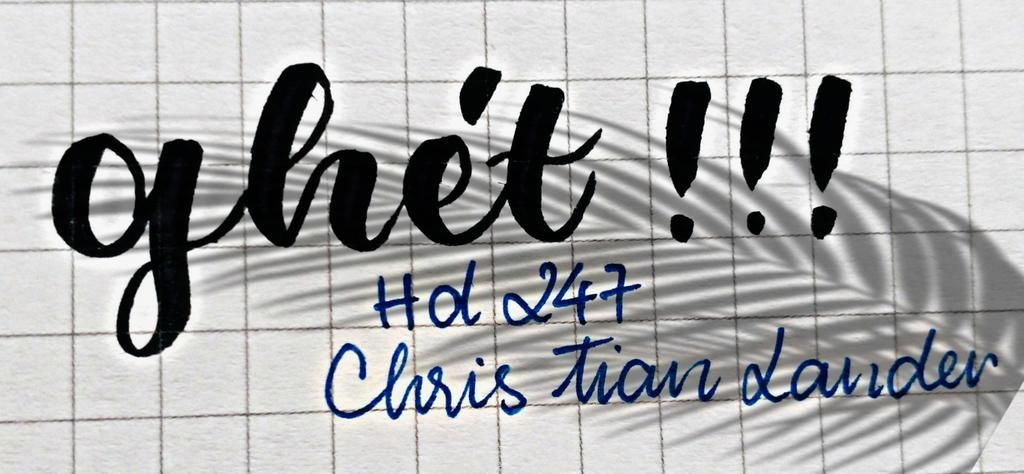 ghét !!!
Hd 247
Chris tian Lander